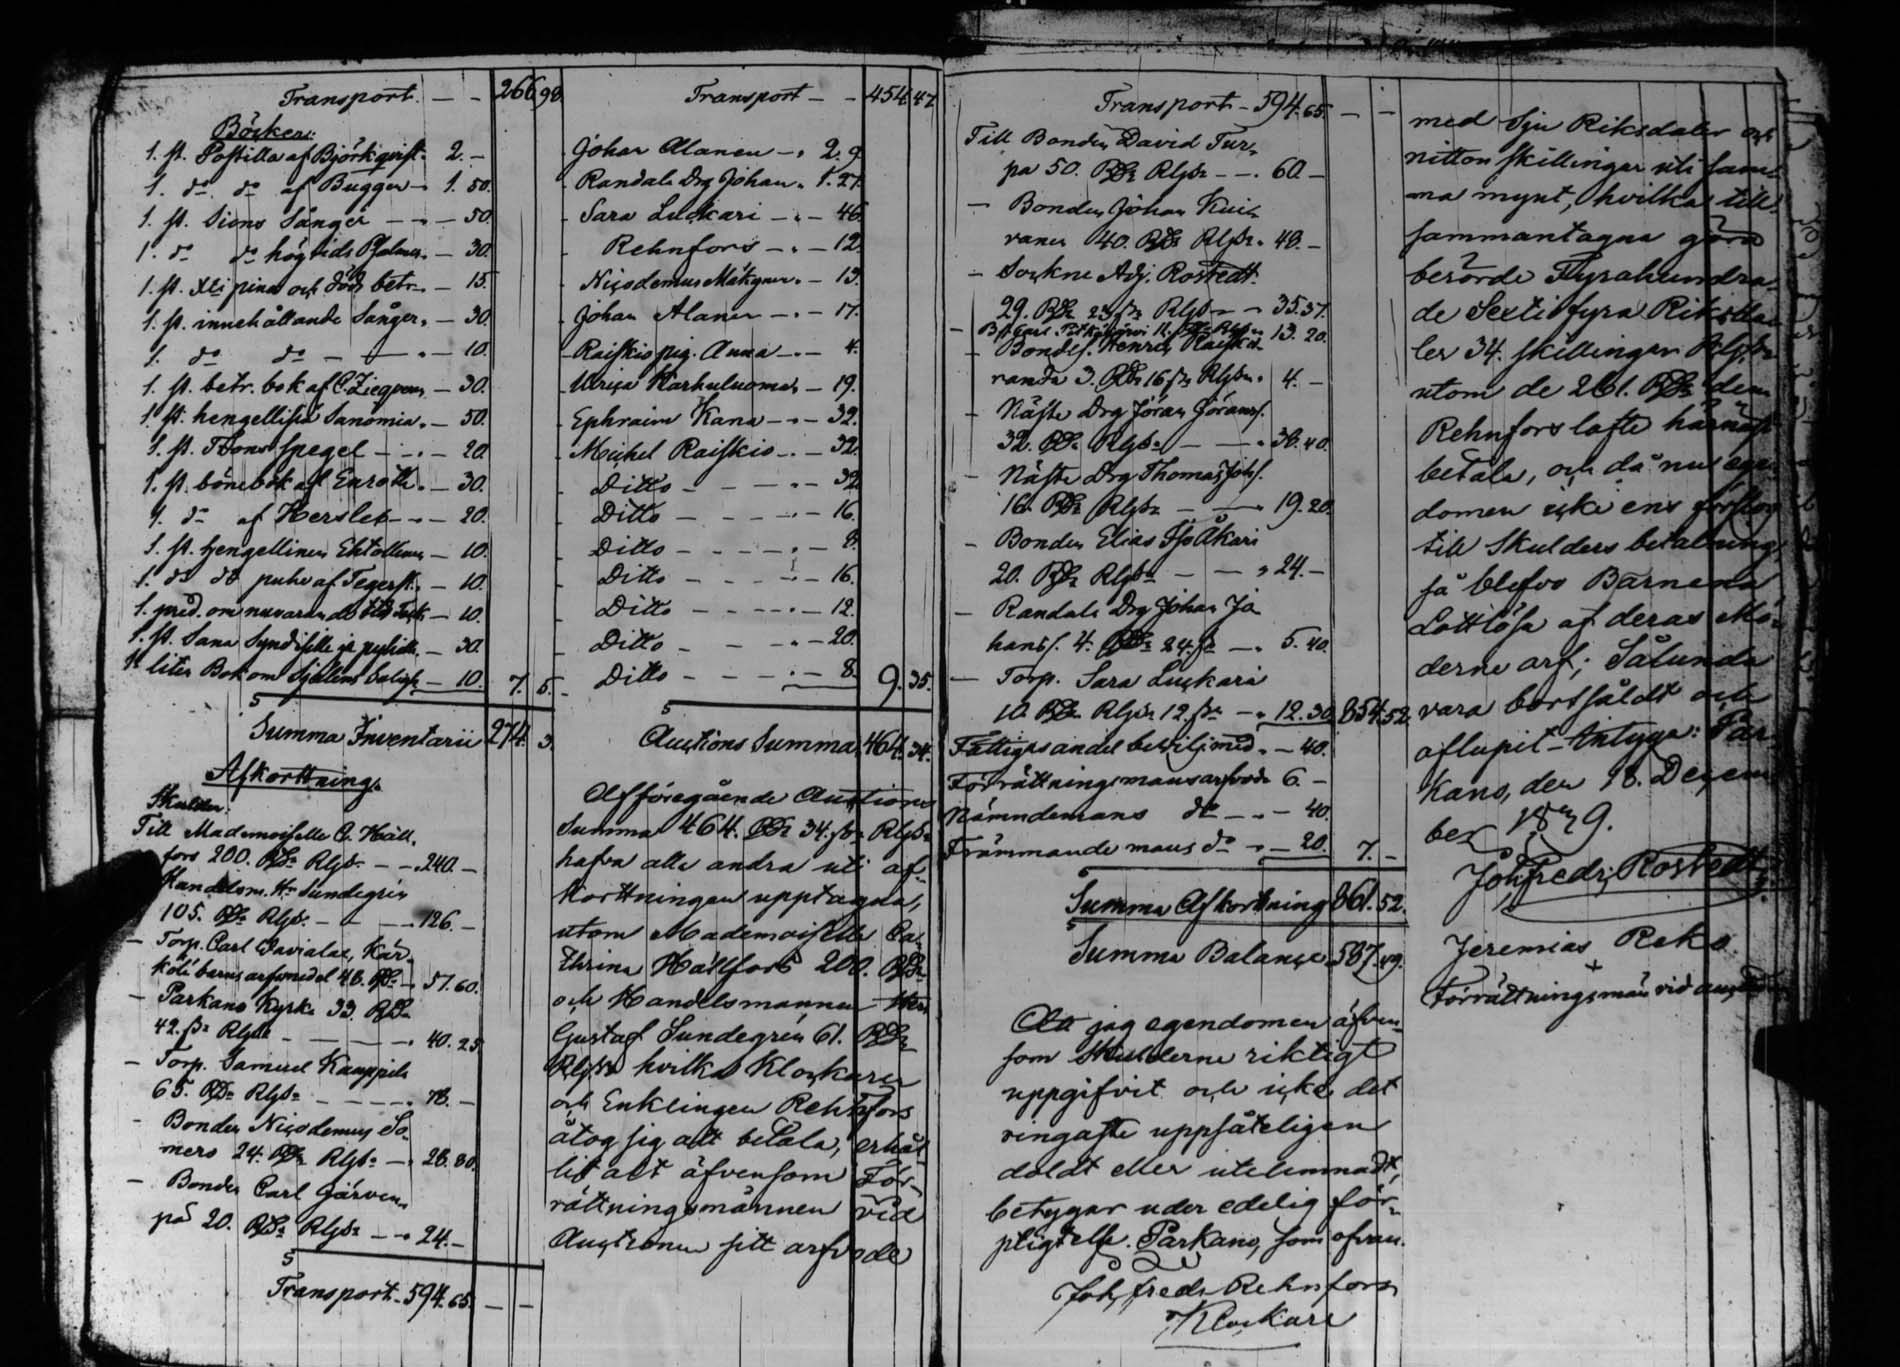 Transport. — — 266 98.
Böcker:
1. st. Postilla af Björkqvist. 2. —
1. do do af Bugge — 1. 50.
1. st. Sions Sånger — — 50
1. do do högtids Psalmer. — 30.
1. st. Xti pina och död betr. — 15.
1. st. innehållande Sånger. — 30.
1. do do — — — 10.
1. st. betr. bok af C. — 30.
1. st. hengellisiä Sanomia. — 50.
1. st. Spegel — — 20.
1. st. bönebok af — 30.
1. do af Hersleb — — 20.
1. st. hengellinen Ehtollinen — 10.
1. do do puhe af — 10.
1. pred. om nuvarande — 10.
1. st. Sana Syndiselle — 30.
1. liten Bok om Själens — 10. 7. 5.
Summa Inventarii 274. 3.
Afkorttning.
Skulder:
Till Mademoiselle C. Häll-
fors 200. RD Rgs — — 240. —
Handelsm. Hr Sundegrén
105. RD Rgs. — — 126. —
— Torp. Carl
barns arfvmedel 48. RD — 57. 60.
— Parkano Kyrka 33. RD
42. sk Rgs — — 40. 25.
— Torp. Samuel Kauppila
65. RD Rgs — — 78. —
— Bonden Nicodemus So-
mero 24. RD Rgs — 28. 80.
— Bonden Carl Järven-
pä 20. RD Rgs — — 24. —
Transport. 594. 65. — —
Transport — — 454 47.
Johan Alanen — 2. 9.
Randals Drg Johan. 1. 27.
Sara Luckari — — 46.
Rehnfors — — 12.
Nicodemus — 13.
Johan Alanen — — 17.
Raiskio pig. Anna — 4.
Ulrica Karhuluoma — 19.
Ephraim Kana — — 32.
Michel Raiskio — — 32.
Ditto — — — 32
Ditto — — — 16.
Ditto — — — 8.
Ditto — — — 16.
Ditto — — — 12.
Ditto — — — 20.
Ditto — — — 8. 9. 35.
Auctions Summa 464. 34.
Af föregående Auctions
Summa 464. RD 34. sk Rgs
hafva alla andra uti af-
korttningen upptagna,
utom Mademoiselle Ca-
thrina Hällfors 200. RD
och Handelsmannen Herr
Gustaf Sundegrén 61. RD
Rgs hvilka Klockaren
och Enklingen Rehnfors
åtog sig att betala, erhål-
lit alt äfvensom För-
rättningsmännen vid
Auctionen sitt arfvode
Transport — 594. 65. — —
Till Bonden David Tur-
pa 50. RD Rgs — — 60 —
— Bonden Johan Kui-
vanen 40. RD Rgs. 48. —
— Sockne Adj. Rostedt.
29. RD Rgs — — 35. 37.
— Bd Carl 13. 20.
— Bondes. Henric
randa 3. RD 16 sk Rgs. 4. —
— Näste Drg Jöran Jöranss.
32. RD Rgs — — 38. 40.
— Näste Drg Thomas Johs.
16. RD Rgs — — 19. 20.
— Bonden Elias
20. RD Rgs — — 24. —
— Randals Drg Johan Jo-
hans s. 4. RD 24. sk — 5. 40.
— Torp. Sara Luckari
10. RD Rgs 12. sk — 12. 30. 854. 52.
Fattigas andel — 40.
Förrättningsmans arfvode 6. —
Nämndemans do — — 40.
Främmande mans do — — 20. 7. —
Summa Afkorttning 861. 52.
Summa Balance 587. 49.
Att jag egendomen äfven-
som Skulderne riktigt
uppgifvit och icke det
ringaste uppsåteligen
doldt eller utelemnadt,
betygar under edelig för-
pligtelse. Parkano, som ofvan.
Joh. Fredr. Rehnfors
Klockare
med Sju Riksdaler och
nitton skillingar uti sam-
ma mynt, hvilka till-
sammantagna göra
berörde Fyrahundra-
de Sextifyra Riksda-
ler 34. skillingar Rgs
utom de 261. RD dem
Rehnfors låfte härnäst
betala, och då nu egen-
domen icke ens förslog
till Skulders betalning,
så blefvo Barnena
Lottlösa af deras Mo-
derne arf; Sålunda
vara bortsåldt och
aflupit — Intyga: Par-
kano, den 18. Decem-
ber 1829.
Joh. Fredr. Rostedt
Jeremias Reko
Förrättningsmän vid auction